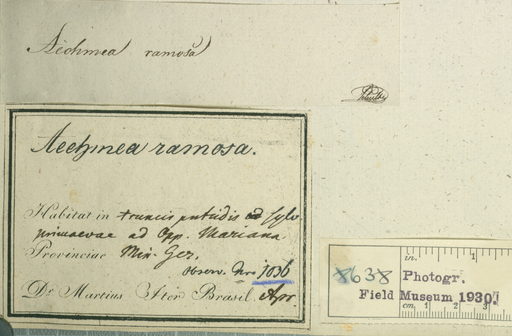 Aechmea ramosa
Aechmea ramosa.
Habitat in truncis putridis ad sylv
primaevae ad Opp. Mariana
Provinciae Min. Ger.
Observ. Nro 1036
Dr. Martius Iter Brasil. Apr.
8638 Photogr.
Field Museum 1930.
in. 1
cm. 1 2 3